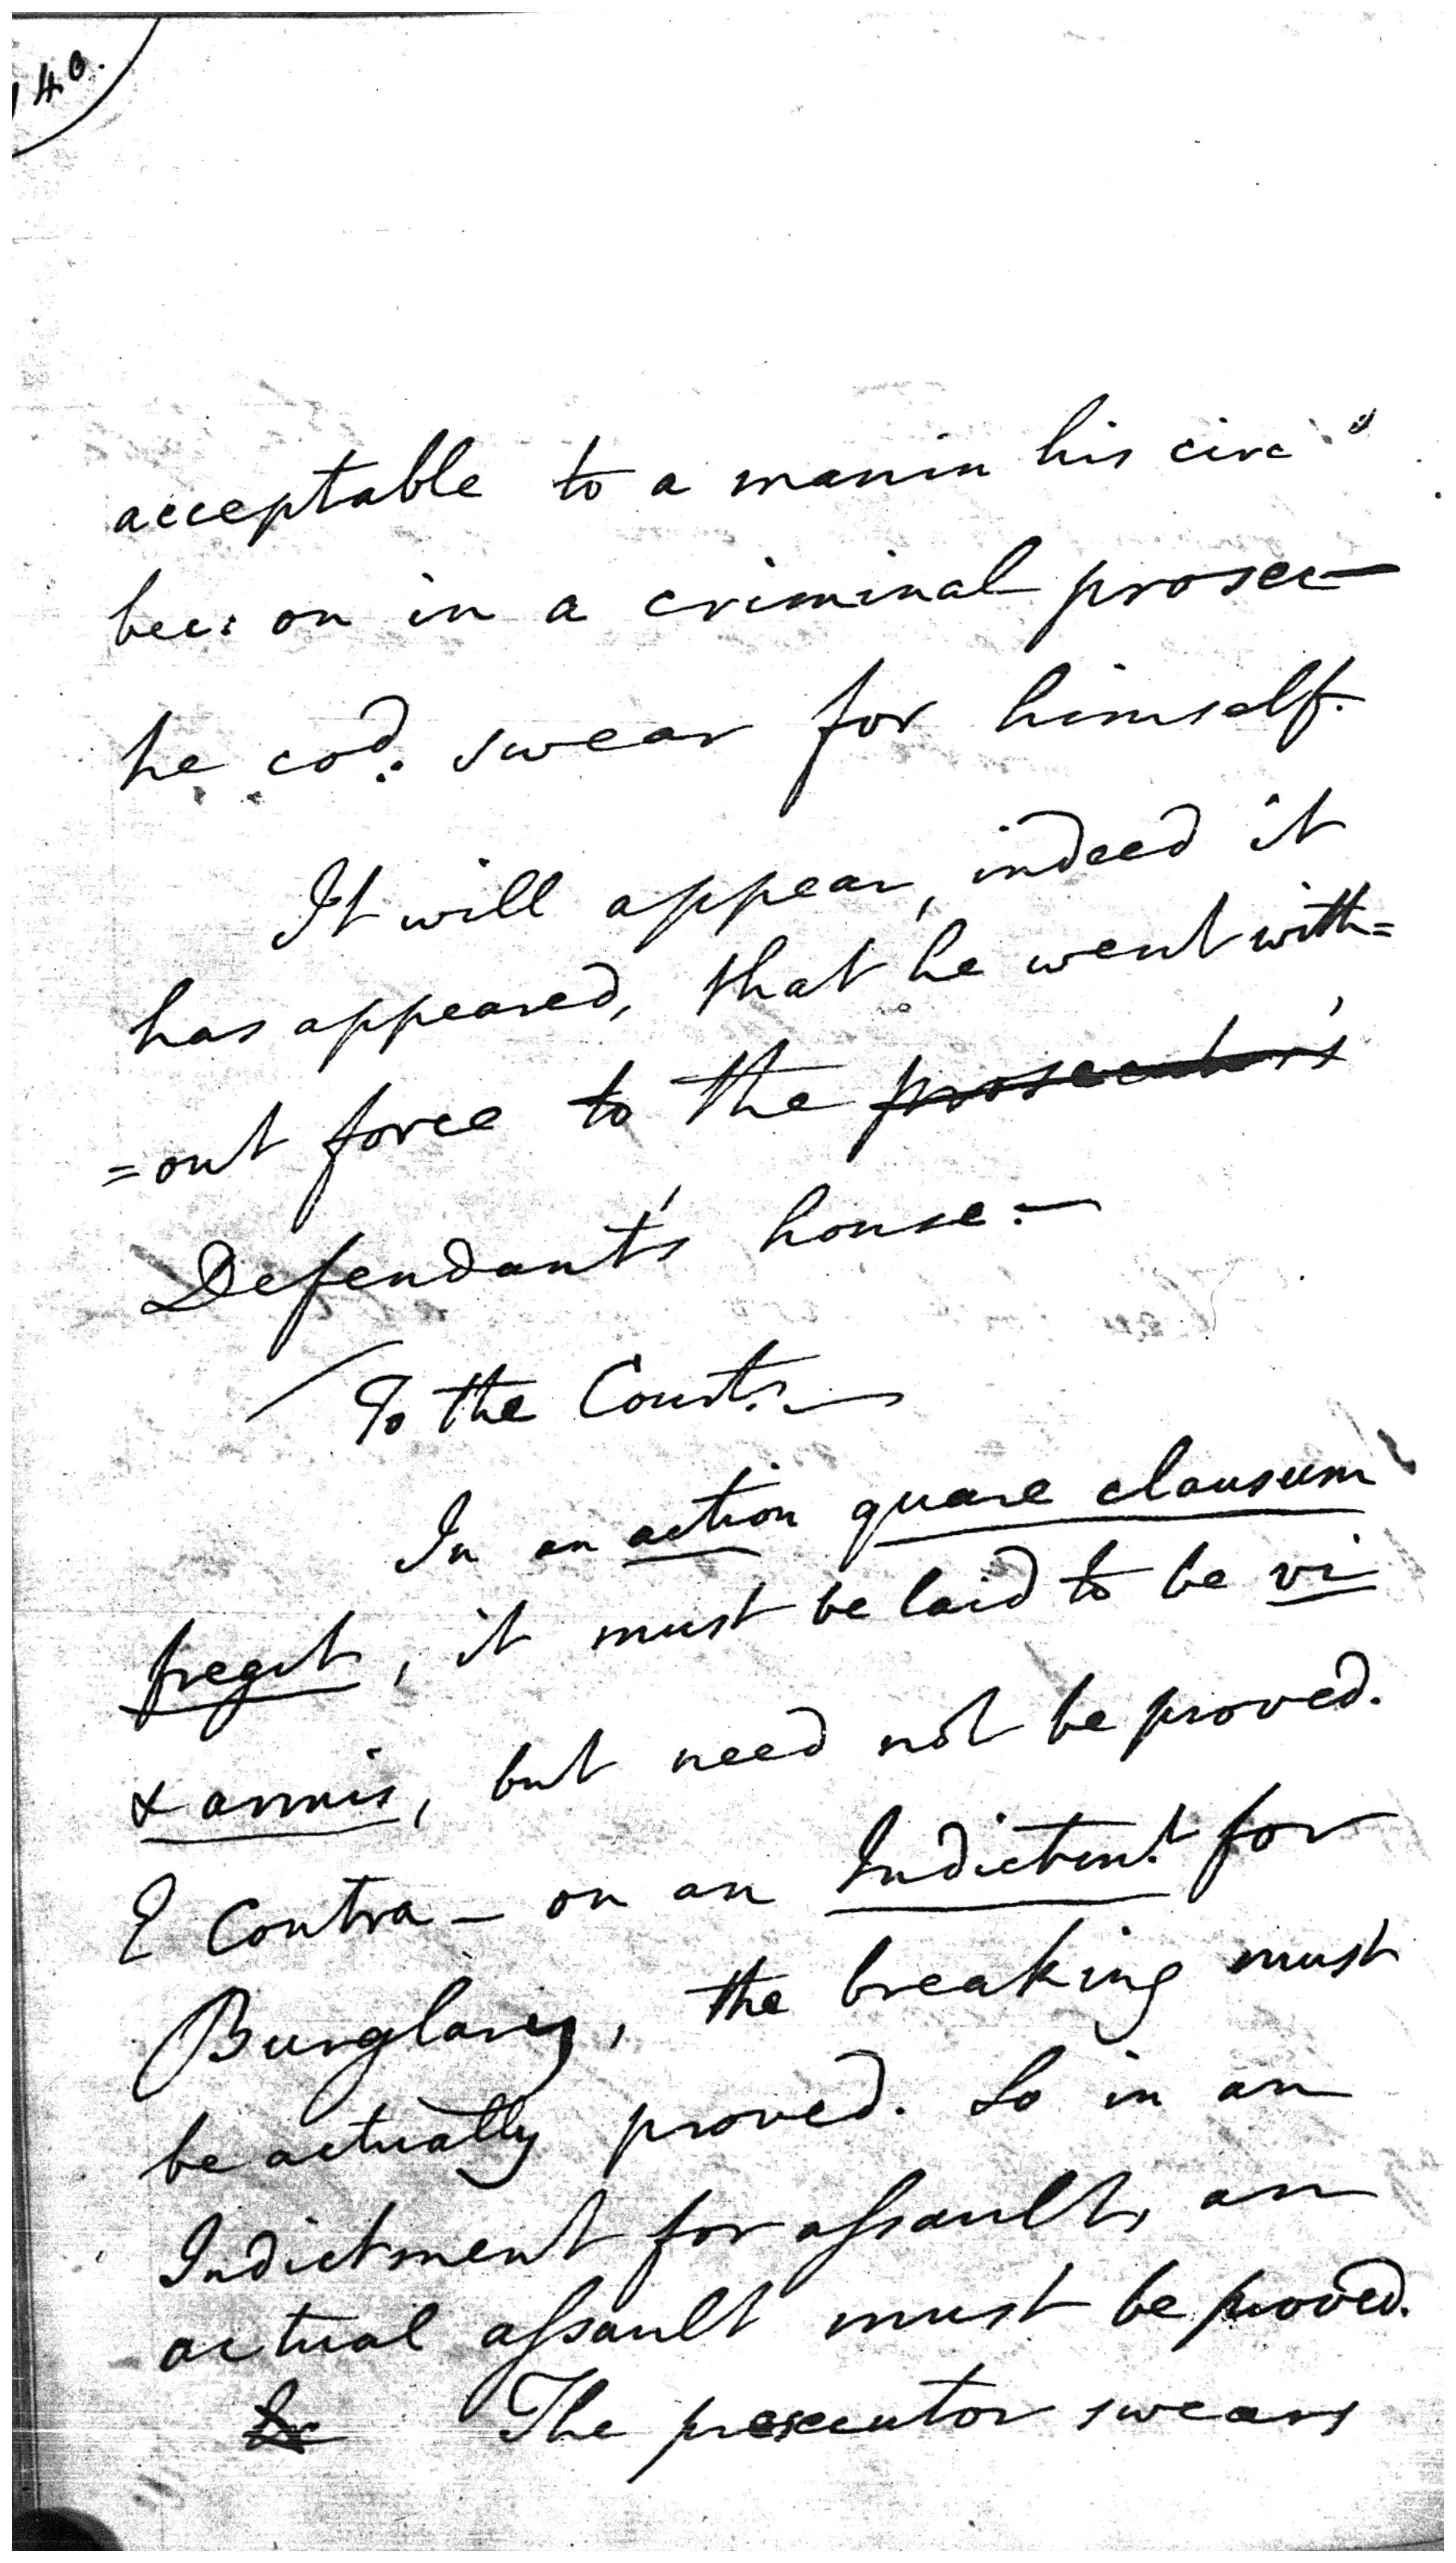 140.
acceptable to a man in his circ"
bec: on in a criminal prosec—
he cod. swear for himself.
It will appear, indeed it
has appeared, that he went with=
=out force to the prosecutor's
Defendant's house.—
To the Court.—
In an action quare clausum
fregit, it must be laid to be vi
& armis, but need not be proved.
E Contra — on an Indictmt. for
Burglary, the breaking must
be actually proved. So in an
Indictment for assault, an
actual assault must be proved.
The prosecutor swears